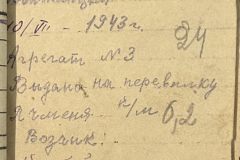 10/VII - 1943 г.
24
Агрегат №3
Выдана на перевалку
Ячменя п/м 6,2
Возчик: